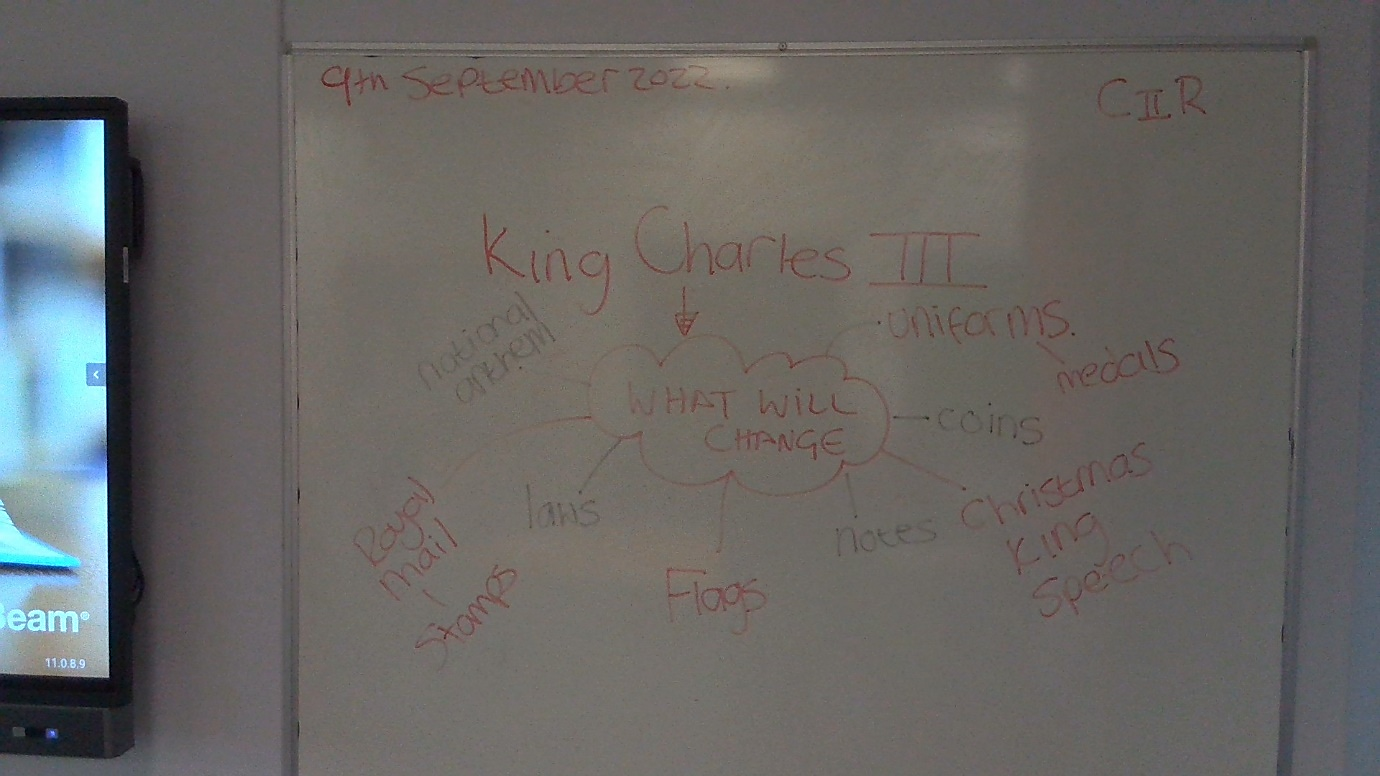 9th September 2022.
CIIR
King Charles III
national
anthem
uniforms.
medals
WHAT WILL
CHANGE
coins
Royal
Mail
stamps
laws
Flags
notes
Christmas
King
Speech
Beam®
11.0.8.9